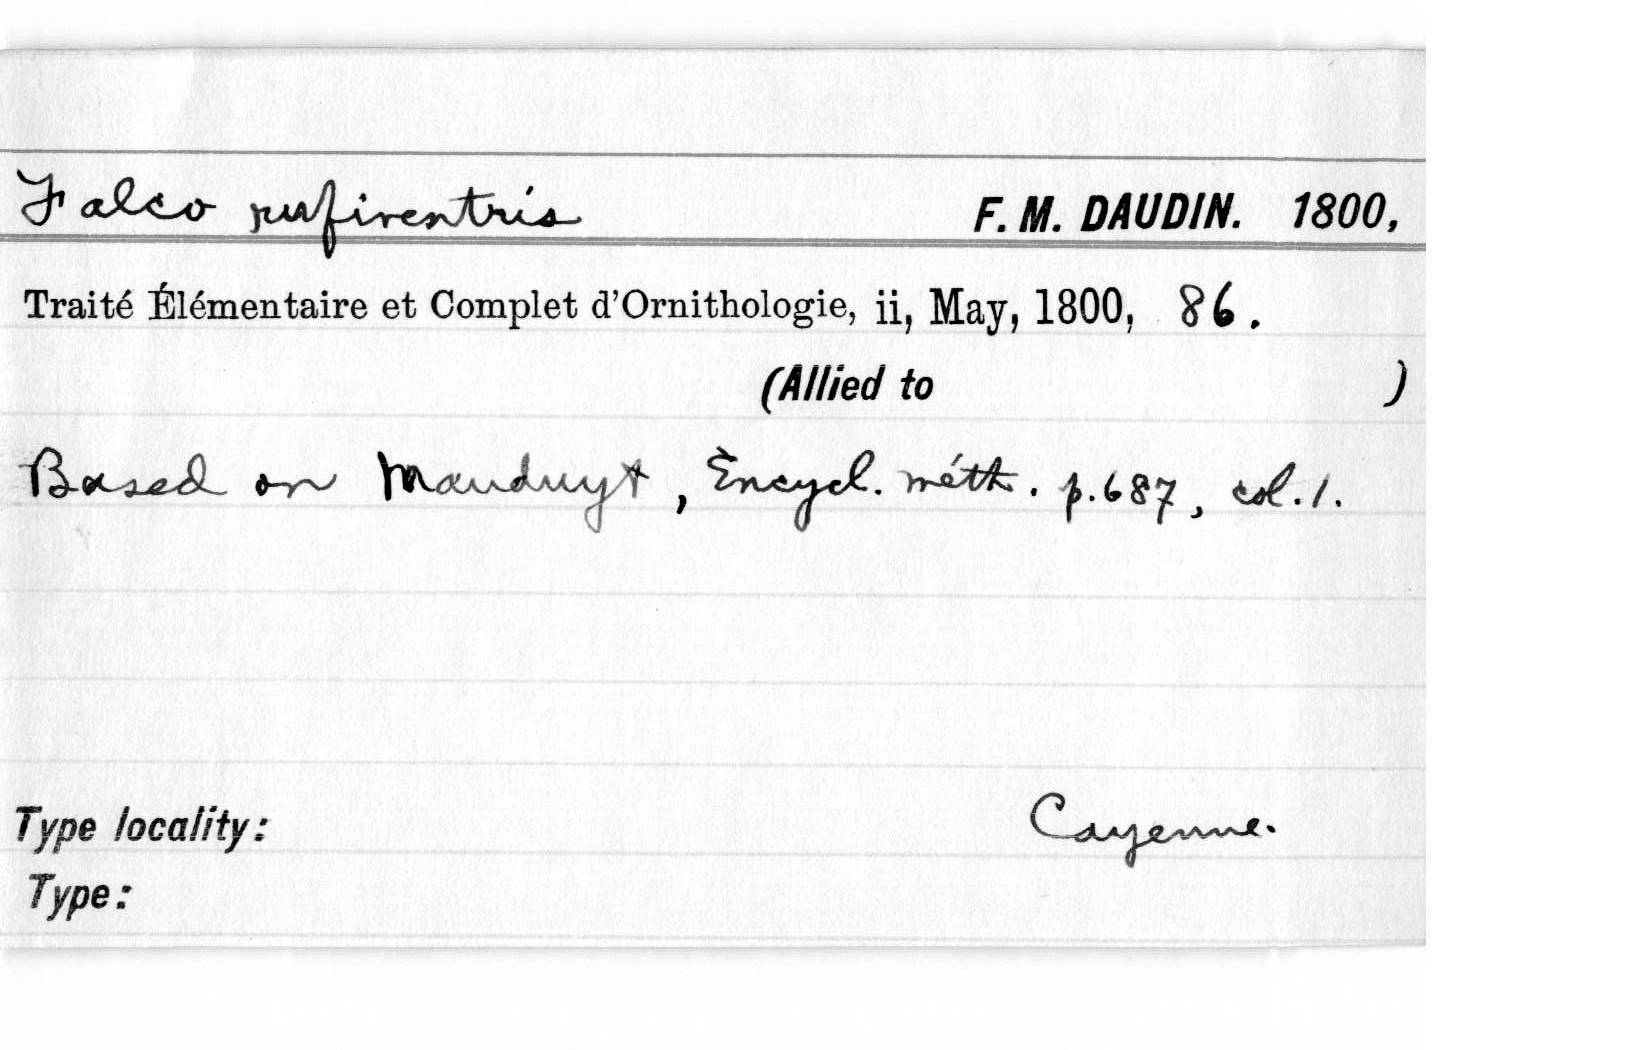 Falco rufiventris F. M. DAUDIN. 1800,
Traité Élémentaire et Complet d'Ornithologie, ii, May, 1800, 86.
(Allied to )
Based on Mauduyt, Encycl. méth. p. 687, col. 1.
Type locality: Cayenne.
Type: